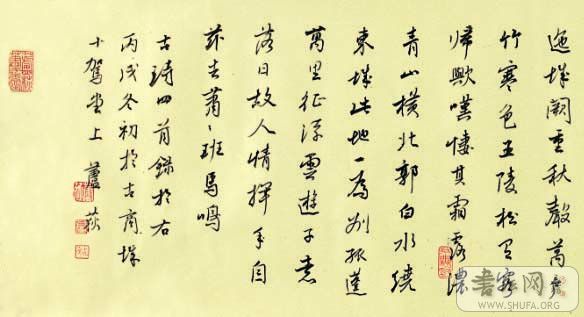 迤城闕重秋聲萬戶
竹寒色五陵松有客
歸歟嘆悽其霜露濃
青山橫北郭白水繞
東城此地一為別孤蓬
萬里征浮雲遊子意
落日故人情揮手自
茲去蕭〻班馬鳴
古詩四首錄於右
丙戌冬初於古商城
十駕堂上 蘆荻
书法网
WWW.SHUFA.COM